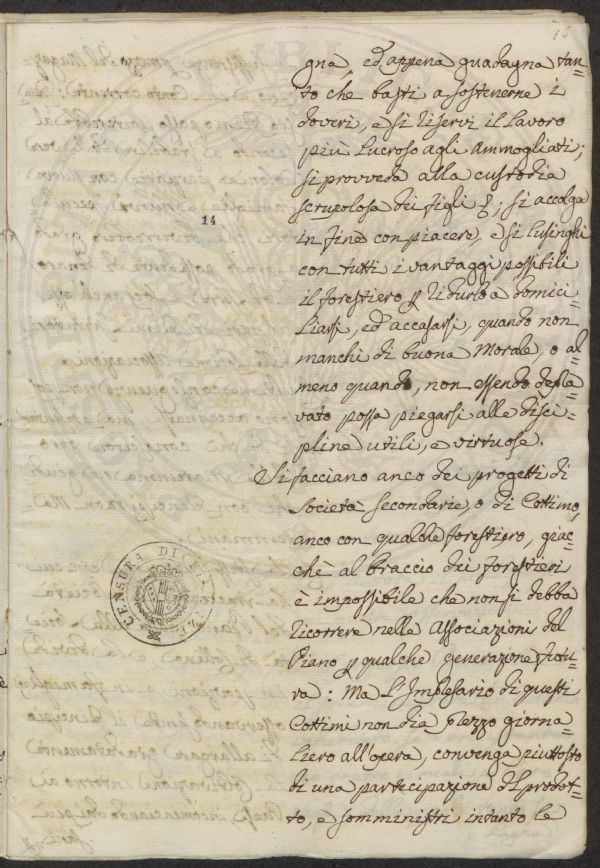 16
gna, ed appena guadagna tan=
to che basti a sostenerne i
doveri, e si riservi il Lavoro
più Lucroso agli Ammogliati;
si provveda alla custodia
scrupolosa dei figli; si accolga
14
in fine con piacere, e si lusinghi
con tutti i vantaggi possibili
il forestiero p ridurlo a domici=
liarsi, ed accasarsi, quando non
manchi di buona Morale, o al=
meno quando, non essendo depra=
vato possa piegarsi alle disci=
pline utili, e virtuose.
Si facciano anco dei progetti di
Società secondarie, o di Cottimo,
anco con qualche forestiero, giac=
chè al braccio dei forestieri
è impossibile che non si debba
ricorrere nelle Associazioni del
Piano p qualche generazione futu=
ra: Ma l'Impresario di questi
Cottimi non dia prezzo giorna=
liero all'opera, convenga piuttosto
di una partecipazione del prodot=
to, e somministri intanto le
CENSURA DI FIRENZE